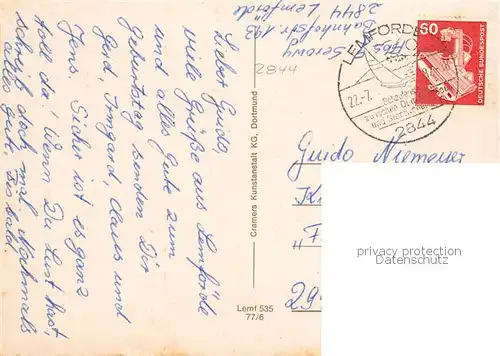 Lieber Guido,
viele Grüße aus Lemförde
und alles Gute zum
Geburtstag senden Dir
Gerd, Irmgard, Claus und
Jens. Sicher ist es ganz
toll da! Wenn Du Lust hast,
schreib doch mal. Nochmals
alles Gute, bis bald.
Abs.
Bahnhofstr. 193
2844 Lemförde
2844
Cramers Kunstanstalt KG, Dortmund
Lemf 535
77/6
LEMFÖRDE
22.-7.
zwischen
und
2844
50
DEUTSCHE BUNDESPOST
Guido Niemeyer
29
privacy protection